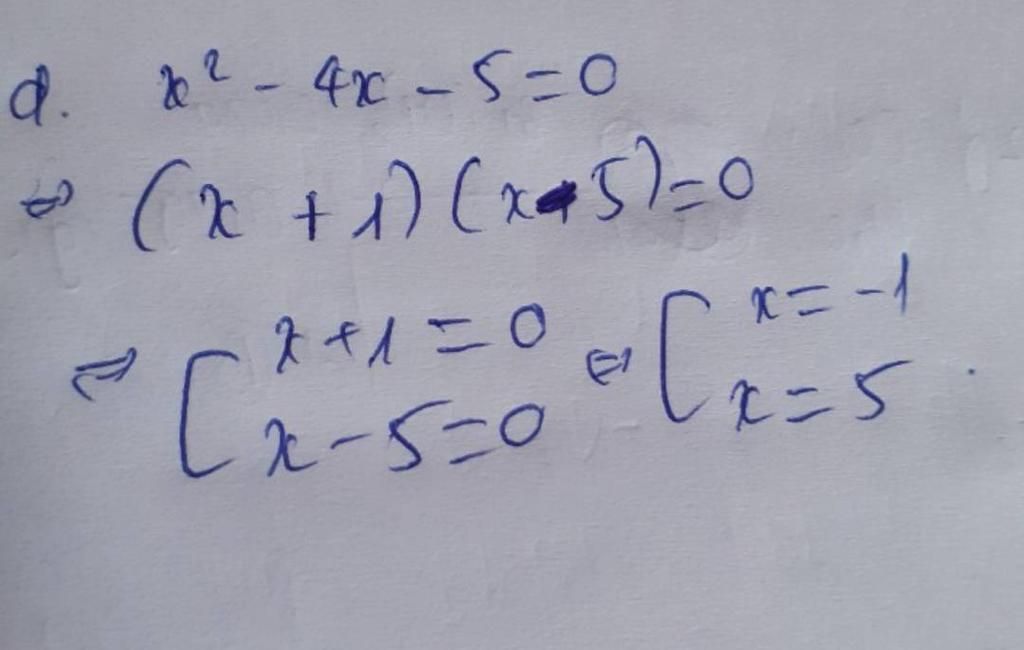 d. x² - 4x - 5 = 0
⇔ (x + 1)(x - 5) = 0
⇔ [ x + 1 = 0 ⇔ [ x = -1
x - 5 = 0 x = 5